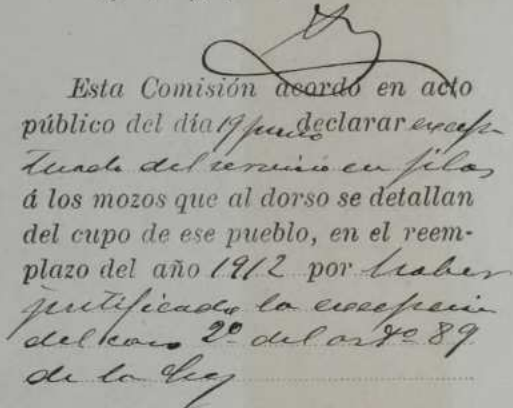 Esta Comisión acordó en acto
público del día 19 junio declarar excep-
tuado del servicio en filas
á los mozos que al dorso se detallan
del cupo de ese pueblo, en el reem-
plazo del año 1912 por haber
justificado la excepcion
del caso 2º del artº 89
de la Ley